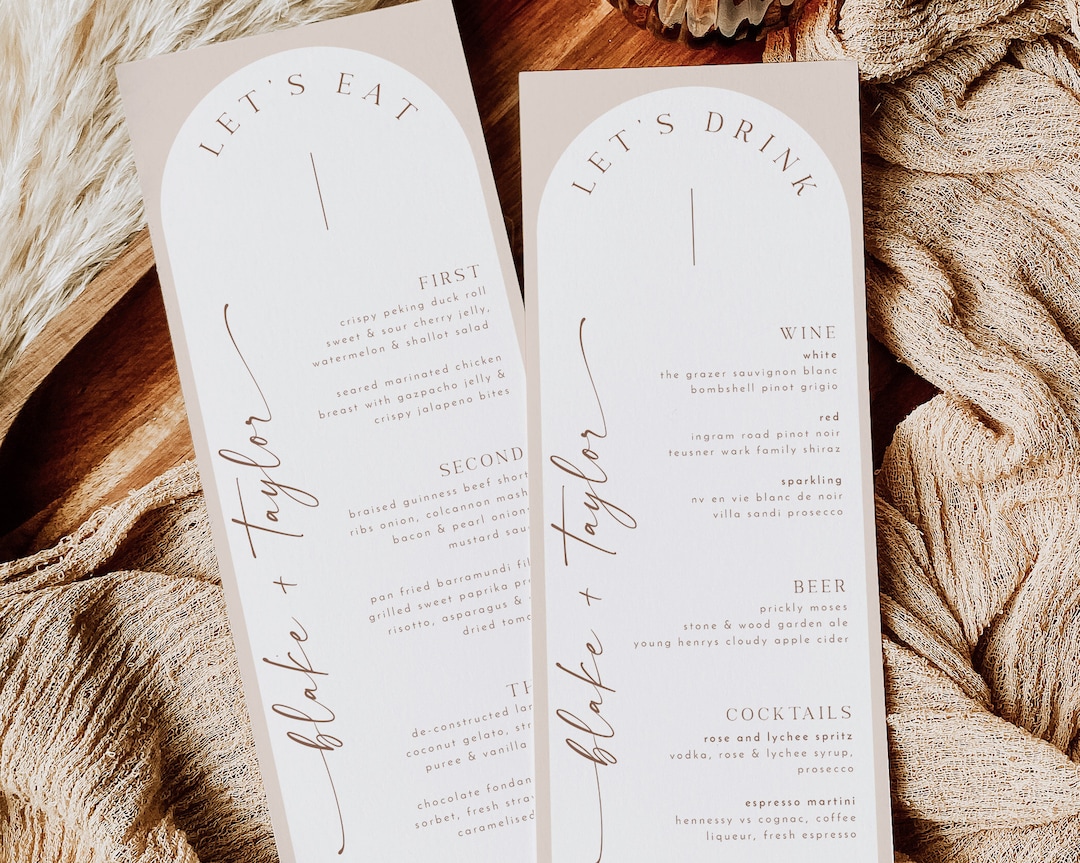 LET'S EAT
FIRST
crispy peking duck roll
sweet & sour cherry jelly,
watermelon & shallot salad
seared marinated chicken
breast with gazpacho jelly &
crispy jalapeno bites
SECOND
braised guinness beef short
ribs onion, colcannon mash
bacon & pearl onion
mustard
pan fried barramundi
grilled sweet paprika
risotto, asparagus &
dried
de-constructed
coconut gelato,
puree & vanilla
chocolate
sorbet, fresh
caramelised
blake + taylor
LET'S DRINK
WINE
white
the grazer sauvignon blanc
bombshell pinot grigio
red
ingram road pinot noir
teusner wark family shiraz
sparkling
nv en vie blanc de noir
villa sandi prosecco
BEER
prickly moses
stone & wood garden ale
young henrys cloudy apple cider
COCKTAILS
rose and lychee spritz
vodka, rose & lychee syrup,
prosecco
espresso martini
hennessy vs cognac, coffee
liqueur, fresh espresso
blake + taylor